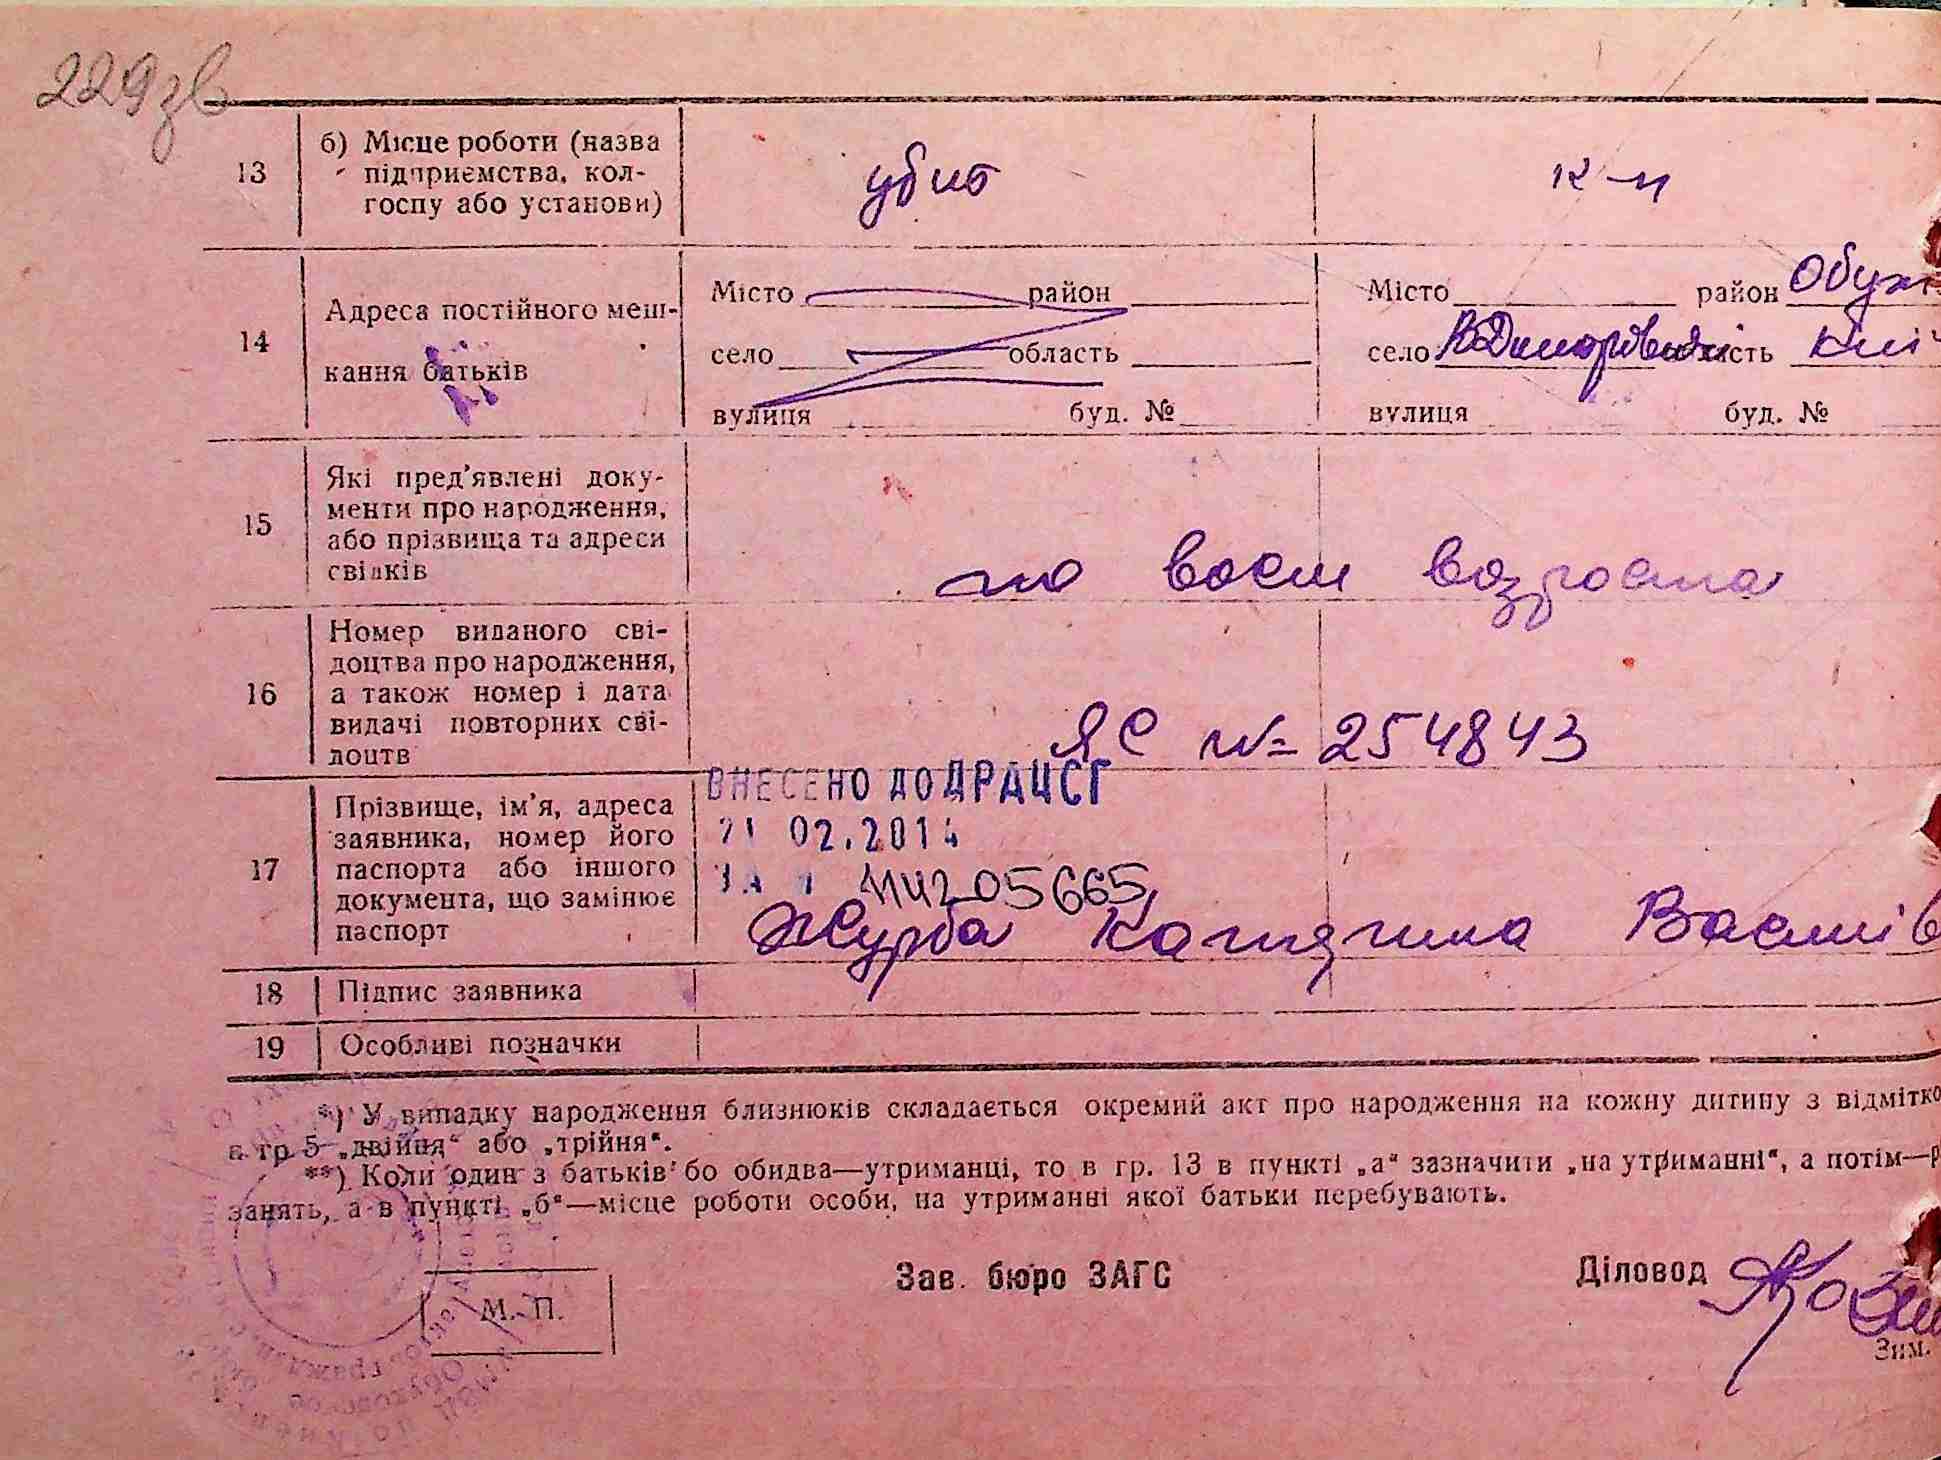 229зв
13
б) Місце роботи (назва
підприємства, кол-
госпу або установи)
убит
к-п
14
Адреса постійного меш-
кання батьків
Місто район
село область
вулиця буд. №
Місто район Обух
село область Киї
вулиця буд. №
15
Які пред'явлені доку-
менти про народження,
або прізвища та адреси
свідків
возроста
16
Номер виданого сві-
доцтва про народження,
а також номер і дата
видачі повторних сві-
доцтв
ЯС № 254843
17
Прізвище, ім'я, адреса
заявника, номер його
паспорта або іншого
документа, що замінює
паспорт
ВНЕСЕНО ДО ДРАЦСГ
21 02.2014
05665
Журба Катярина Василів
18 Підпис заявника
19 Особливі позначки
*) У випадку народження близнюків складається окремий акт про народження на кожну дитину з відмітко
в гр 5 „двійня“ або „трійня“.
**) Коли один з батьків бо обидва—утриманці, то в гр. 13 в пункті „а“ зазначити „на утриманні“, а потім—р
занять, а в пункті „б“—місце роботи особи, на утриманні якої батьки перебувають.
Зав. бюро ЗАГС
Діловод
М. П.